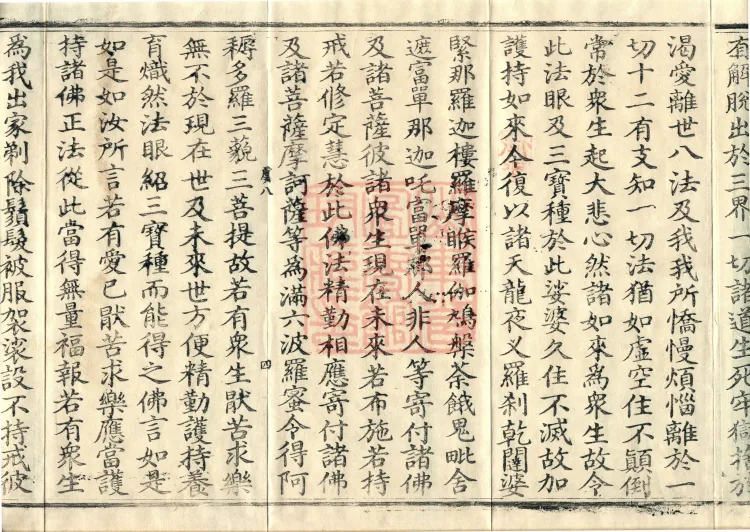 有解脫出於三界一切諸道生死牢獄
渴愛離世八法及我我所憍慢煩惱離於一
切十二有支知一切法猶如虛空住不顚倒
常於衆生起大悲心然諸如來爲衆生故令
此法眼及三寶種於此娑婆久住不滅故加
護持如來今復以諸天龍夜叉羅刹乾闥婆
緊那羅迦樓羅摩睺羅伽鳩槃茶餓鬼毗舍
遮富單那迦吒富單那人非人等寄付諸佛
及諸菩薩彼諸衆生現在未來若布施若持
戒若修定慧於此佛法精勤相應寄付諸佛
及諸菩薩摩訶薩等爲滿六波羅蜜令得阿
虞八 四
耨多羅三藐三菩提故若有衆生猒苦求樂
無不於現在世及未來世方便精勤護持養
育熾然法眼紹三寶種而能得之佛言如是
如是如汝所言若有愛已猒苦求樂應當護
持諸佛正法從此當得無量福報若有衆生
爲我出家剃除鬚髮被服袈裟設不持戒彼